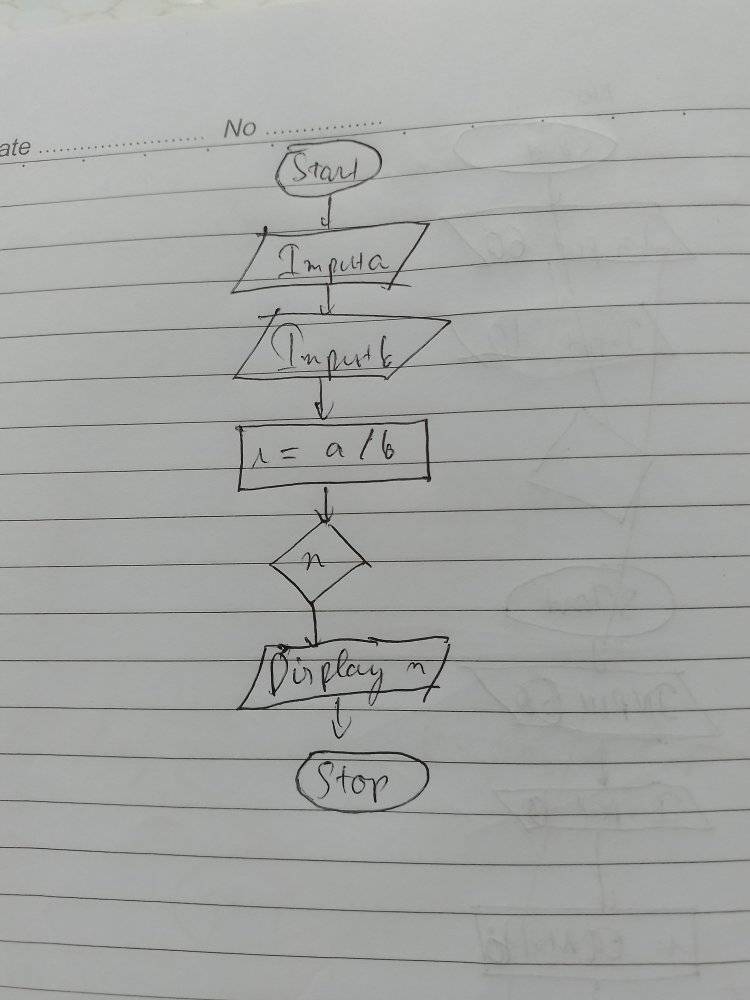 ate ........................ No .................
Start
Input a
Input b
r = a / b
r
Display r
Stop